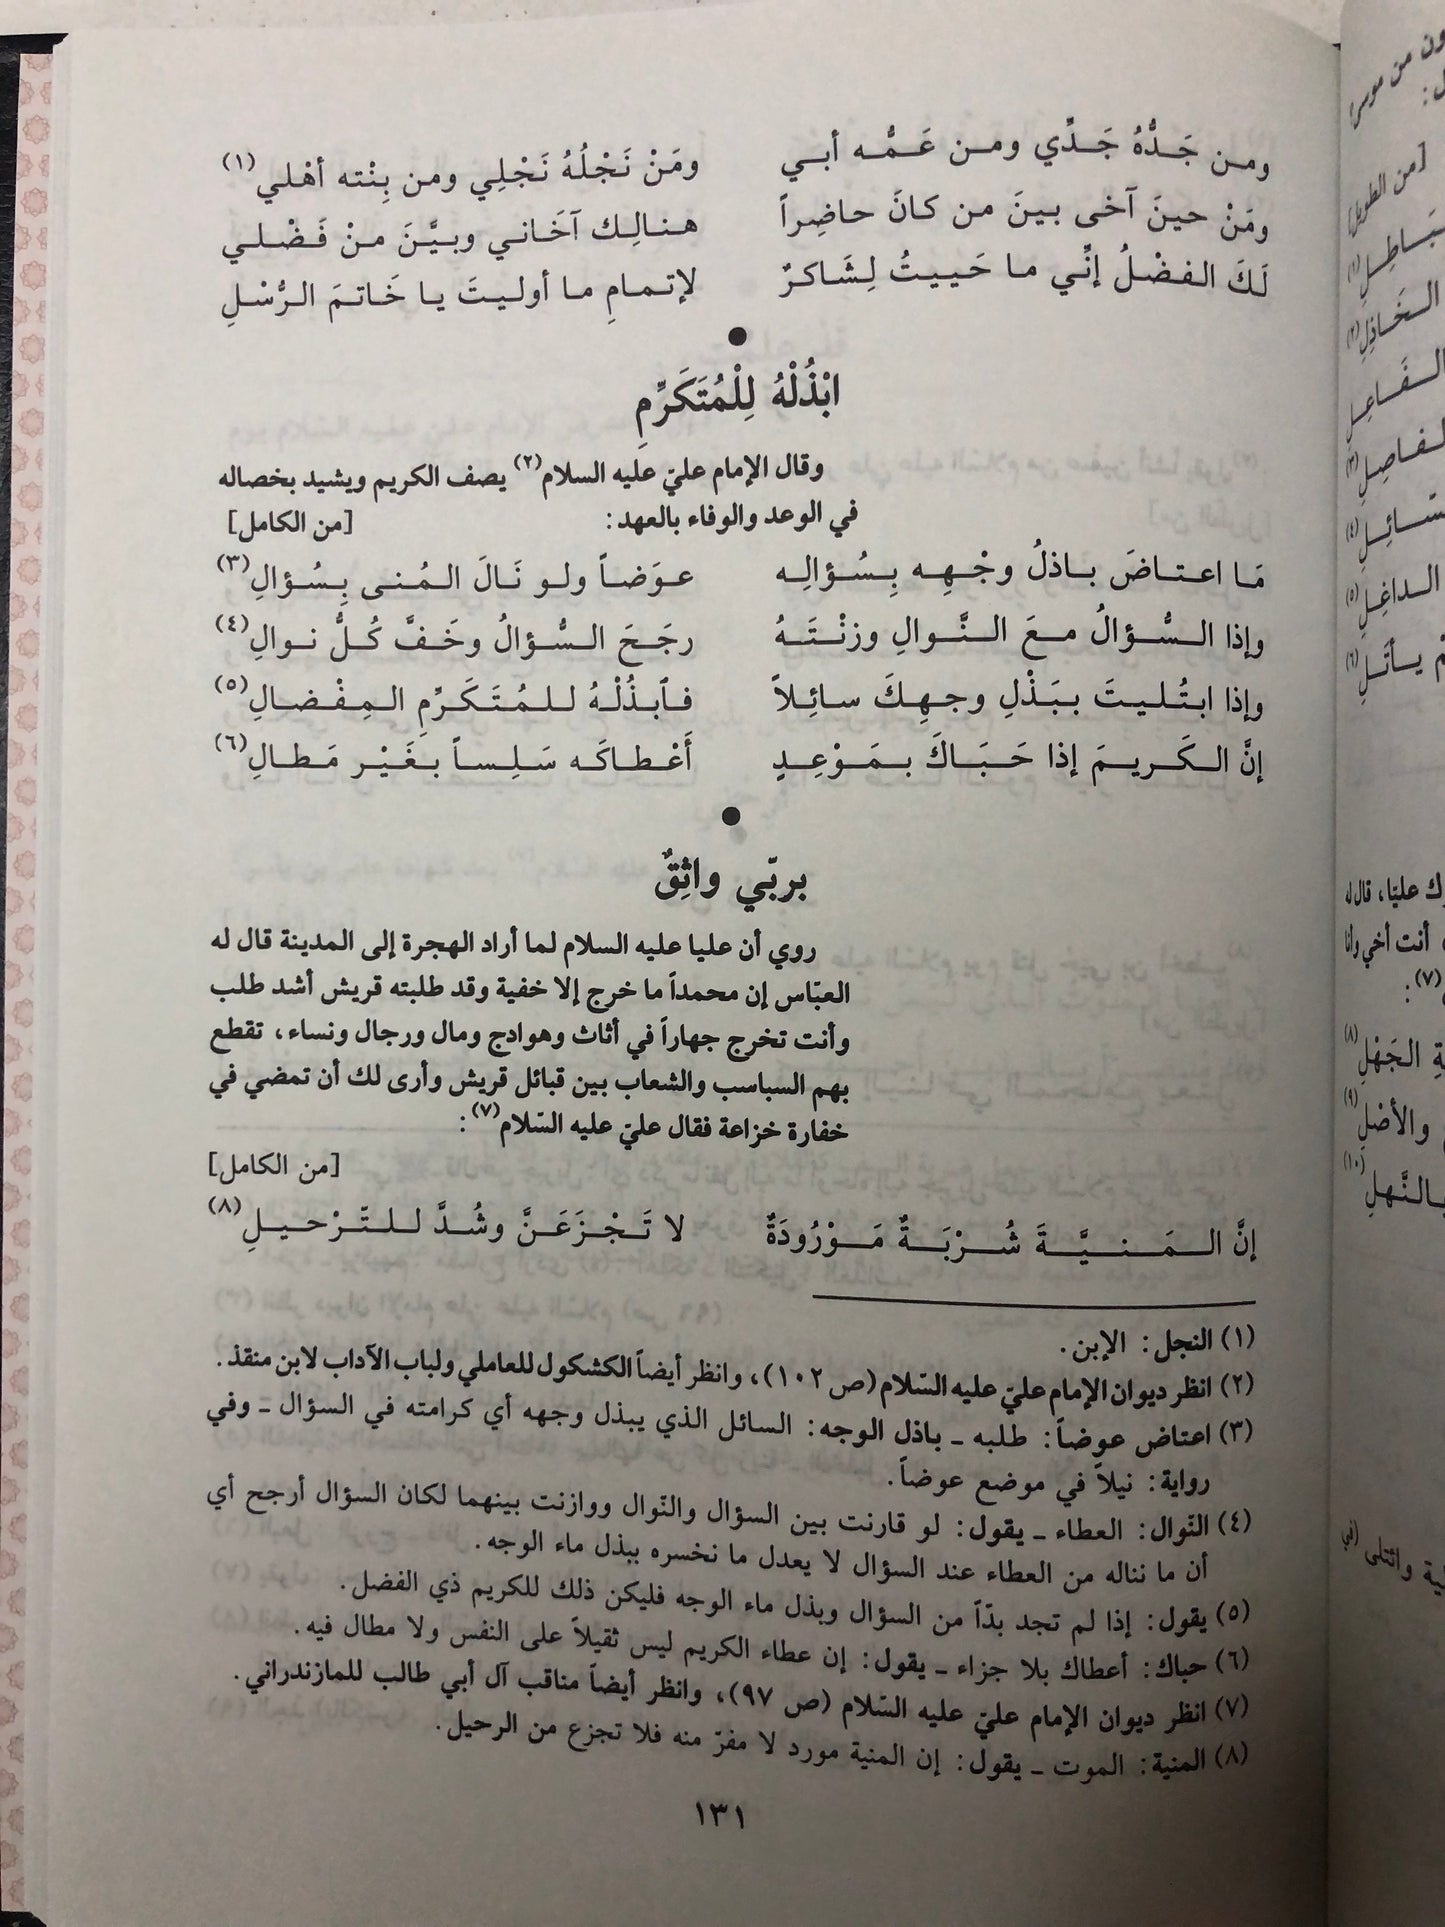 ومن جَدُّهُ جَدِّي ومن عَمُّه أبي ومَنْ نَجْلُهُ نَجْلِي ومن بِنْته أهْلي(١)
ومَنْ حينَ آخى بينَ من كانَ حاضِراً هنالِك آخَاني وبيَّنَ منْ فَضْلي
لَكَ الفضْلُ إنِّي ما حَييتُ لِشَاكرٌ لإتمامِ ما أوليتَ يا خَاتمَ الرُّسْلِ
ابْذُلْهُ لِلْمُتَكَرِّمِ
وقال الإمام عليّ عليه السلام(٢) يصف الكريم ويشيد بخصاله
في الوعد والوفاء بالعهد: [من الكامل]
مَا اعتاضَ باذلُ وجْهِه بِسُؤالِه عوَضاً ولو نَالَ المُنى بِسُؤالِ(٣)
وإذا السُّؤالُ معَ النَّوالِ وزنْتَهُ رجَحَ السُّؤالُ وخَفَّ كُلُّ نوالِ(٤)
وإذا ابتُليتَ ببَذْلِ وجهِكَ سائِلاً فٱبذُلْهُ للمُتَكَرِّمِ المِفْضالِ(٥)
إنَّ الكَريمَ إذا حَبَاكَ بمَوْعِدٍ أَعْطاكَه سَلِساً بغَيْر مَطالِ(٦)
بربّي واثِقٌ
روي أن عليا عليه السلام لما أراد الهجرة إلى المدينة قال له
العبّاس إن محمداً ما خرج إلا خفية وقد طلبته قريش أشد طلب
وأنت تخرج جهاراً في أثاث وهوادج ومال ورجال ونساء، تقطع
بهم السباسب والشعاب بين قبائل قريش وأرى لك أن تمضي في
خفارة خزاعة فقال عليّ عليه السّلام(٧):
[من الكامل]
إنَّ المَنيَّةَ شُرْبَةٌ مَوْرُودَةٌ لا تَجْزَعَنَّ وشُدَّ للتَرْحيلِ(٨)
(١) النجل: الإبن.
(٢) انظر ديوان الإمام عليّ عليه السّلام (ص ١٠٢)، وانظر أيضاً الكشكول للعاملي ولباب الآداب لابن منقذ.
(٣) اعتاض عوضاً: طلبه ـ باذل الوجه: السائل الذي يبذل وجهه أي كرامته في السؤال ـ وفي
رواية: نيلاً في موضع عوضاً.
(٤) النّوال: العطاء ـ يقول: لو قارنت بين السؤال والنّوال ووازنت بينهما لكان السؤال أرجح أي
أن ما نناله من العطاء عند السؤال لا يعدل ما نخسره ببذل ماء الوجه.
(٥) يقول: إذا لم تجد بدّاً من السؤال وبذل ماء الوجه فليكن ذلك للكريم ذي الفضل.
(٦) حباك: أعطاك بلا جزاء ـ يقول: إن عطاء الكريم ليس ثقيلاً على النفس ولا مطال فيه.
(٧) انظر ديوان الإمام عليّ عليه السّلام (ص ٩٧)، وانظر أيضاً مناقب آل أبي طالب للمازندراني.
(٨) المنية: الموت ـ يقول: إن المنية مورد لا مفرّ منه فلا تجزع من الرحيل.
١٣١
ون من موسى
[من الطويل]
الخَاذِلِ(٢)
الداغِلِ(٥)
رك عليّا، قال له
أنت أخي وأنا
(٧):
ةِ الجَهْلِ(٨)
والأصْلِ(٩)
بالنَّهلِ(١٠)